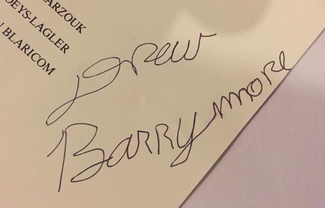 ARZOUK
OEYS-LAGLER
BLARICOM
Drew
Barrymore